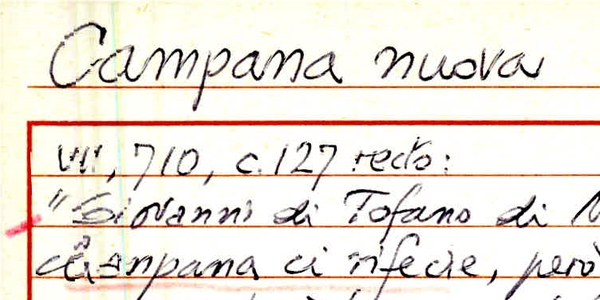 Campana nuova
VII, 710, c. 127 recto:
"Giovanni di Tofano di
campana ci rifecie, però